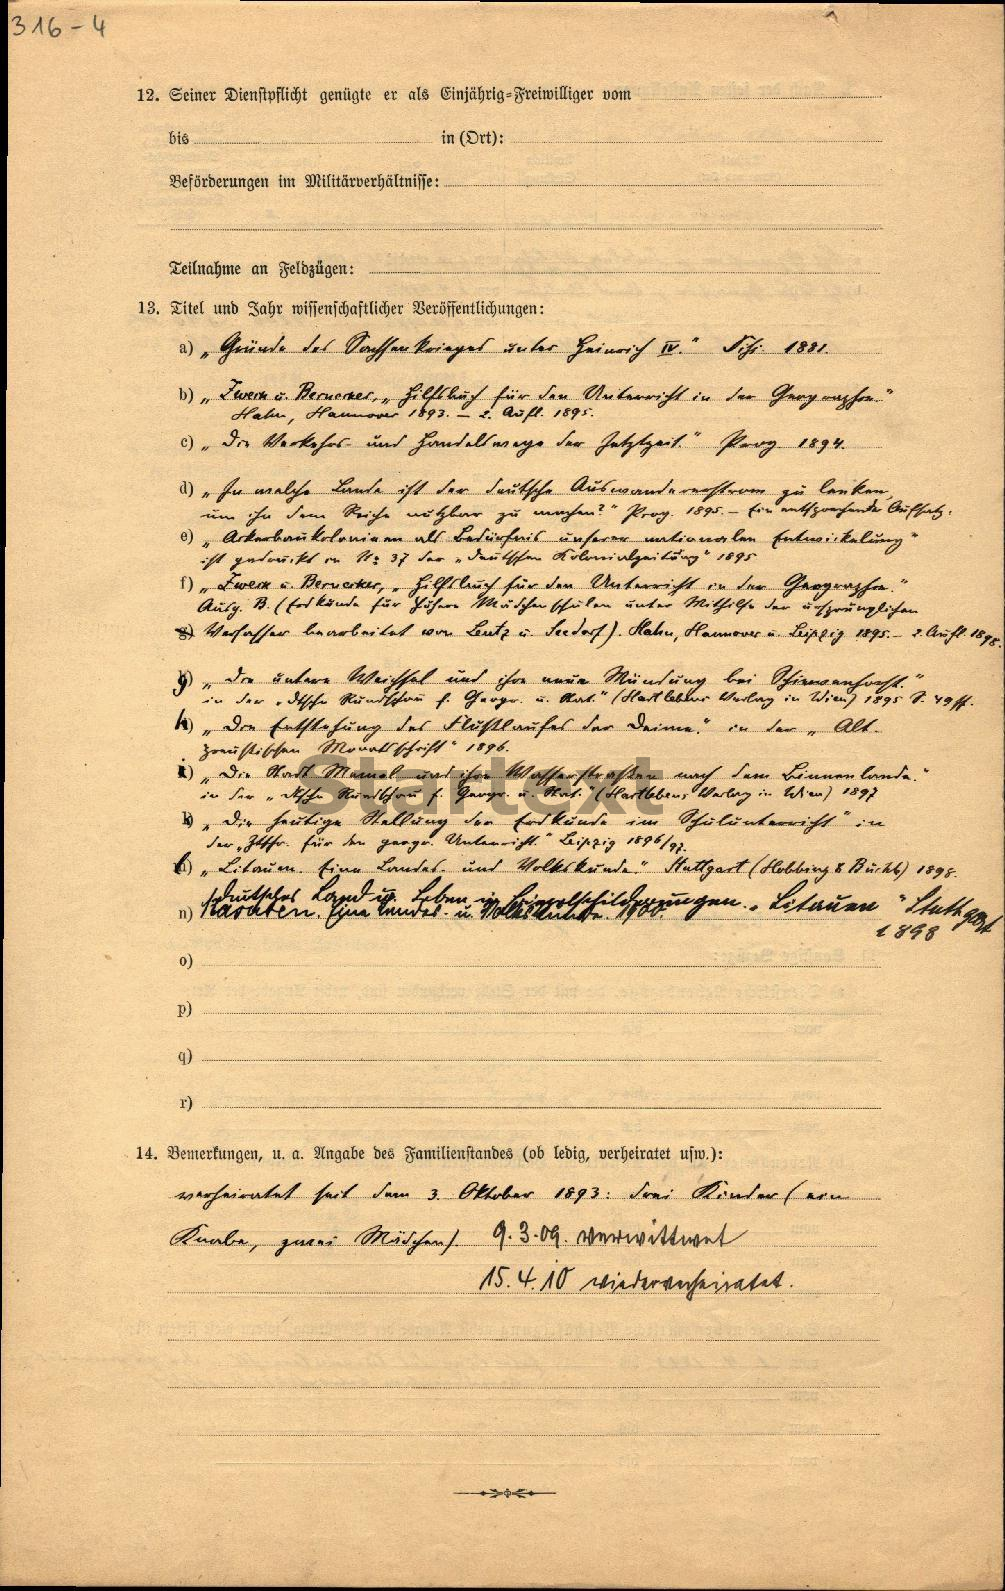 316-4
12. Seiner Dienstpflicht genügte er als Einjährig-Freiwilliger vom
bis in (Ort):
Beförderungen im Militärverhältnisse:
Teilnahme an Feldzügen:
13. Titel und Jahr wissenschaftlicher Veröffentlichungen:
a) „Gründe des Sachsenkrieges unter Heinrich IV." 1881.
b) „Zweck u. Bernecker, „Hilfsbuch für den Unterricht in der Geographie."
Hahn, Hannover 1893. — 2. Aufl. 1895.
c) „Die Verkehrs- und Handelswege der Jetztzeit." Prog. 1894.
d) „In welche Lande ist der deutsche Auswandererstrom zu lenken,
um ihn dem Reiche nutzbar zu machen?" Prog. 1895. — Ein entsprechender Aufsatz:
e) „Ackerbaukolonieen als Bedürfnis unserer nationalen Entwickelung"
ist gedruckt in No 37 der „deutschen Kolonialzeitung" 1895
f) „Zweck u. Bernecker, „Hilfsbuch für den Unterricht in der Geographie."
Ausg. B. (Erdkunde für höhere Mädchenschulen unter Mithilfe der ursprünglichen
g) Verfasser bearbeitet von Lentz u. Seedorf). Hahn, Hannover u. Leipzig 1895. — 2. Aufl. 1898.
g) „Die untere Weichsel und ihre neue Mündung bei Schiewenhorst."
in der „Dtsche Rundschau f. Geogr. u. Stat." (Hartlebens Verlag in Wien) 1895 S. 49 ff.
h) „Die Entstehung des Flußlaufes der Deime." in der „Alt-
preußischen Monatsschrift" 1896.
i) „Die Stadt Memel und ihre Wasserstraßen nach dem Binnenlande."
in der „Dtsche Rundschau f. Geogr. u. Stat." (Hartlebens Verlag in Wien) 1897
k) „Die heutige Stellung der Erdkunde im Schulunterricht" in
der „Ztschr. für den geogr. Unterricht." Leipzig 1896/97.
l) „Litauen. Eine Landes- und Volkskunde." Stuttgart (Hobbing & Büchle) 1898.
Deutsches Land u. Leben in Einzelschilderungen. „Litauen" Stuttgart
1898
n) Masuren. Eine Landes- u. Volkskunde. 1900.
o)
p)
q)
r)
14. Bemerkungen, u. a. Angabe des Familienstandes (ob ledig, verheiratet usw.):
verheiratet seit dem 3. Oktober 1893: drei Kinder (ein
Knabe, zwei Mädchen).
9.3.09. verwittwet
15.4.10 wiederverheiratet.
startext